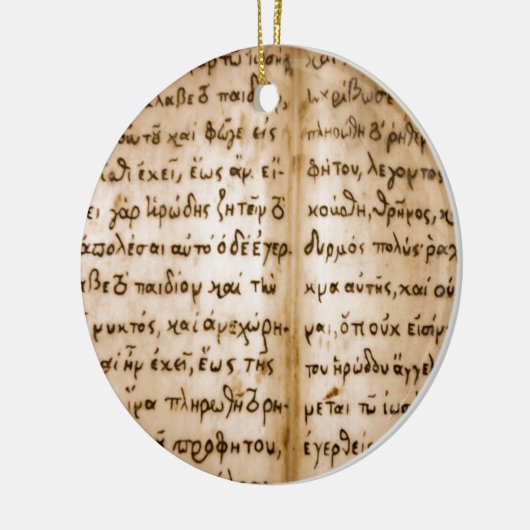 τω Ἰωσὴφ,
λαβε τὸ παιδίον,
αυτοῦ καὶ φεῦγε εἰς
σθι ἐκεῖ, ἕως ἄν εἴ-
ει γαρ ἡρώδης ζητεῖν τὸ
ἀπολέσαι αυτο ὁ δὲ ἐγερ
αβε τὸ παιδίον καὶ τὴν
νυκτός, καὶ ἀνεχώρη-
αὶ ἦν ἐκεῖ, ἕως τῆς
ἵνα πληρωθῆ τὸ ρη-
προφήτου,
και
ηκρίβωσε
πληρωθη τὸ ρηθεν
φήτου, λέγοντος
κούσθη, θρῆνος, κ
δυρμὸς πολύς· ραχ
κνα αὐτῆς, καὶ οὐ
ναι, ὅτι οὐκ εἰσιν
του ἡρώδου ἄγγελ
νεται τῶ ἰωσ
ἐγερθεὶς